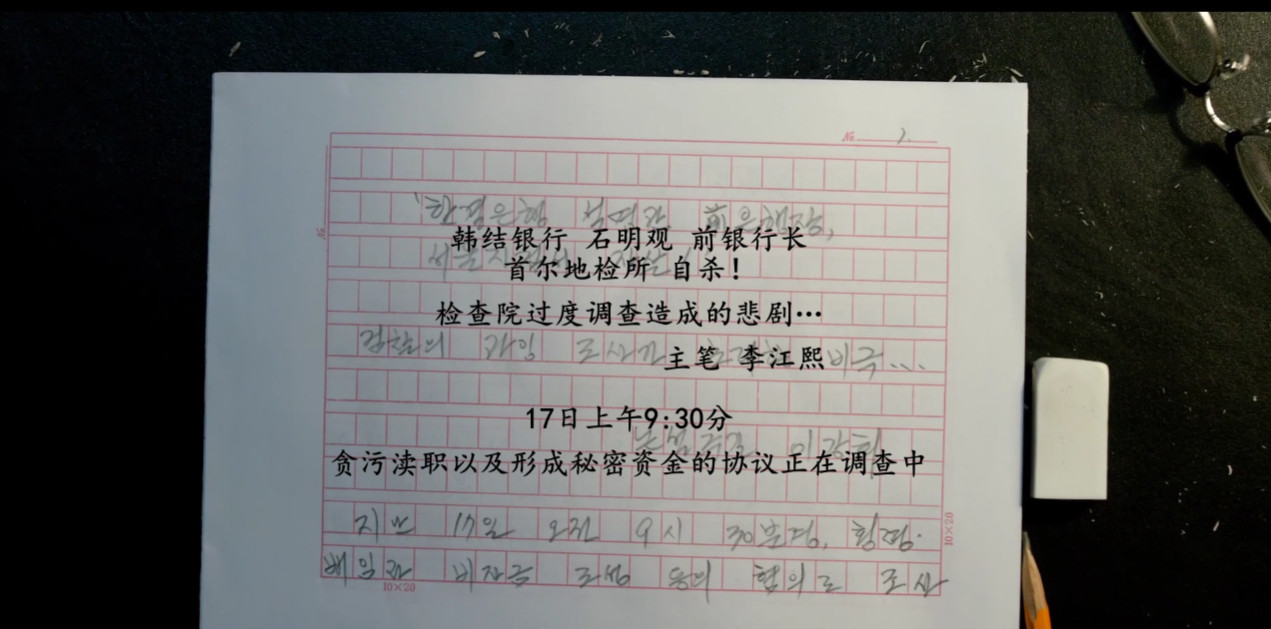 № 1.
'한결은행 석명관 前은행장,
韩结银行 石明观 前银行长
首尔地检所 自杀！
检查院过度调查造成的悲剧…
검찰의 과잉 조사가 비극...
主笔 李江熙
17日上午9:30分
논설주간 이강희
贪污渎职以及形成秘密资金的协议正在调查中
지난 17일 오전 9시 30분경, 횡령·
배임과 비자금 조성 등의 혐의로 조사
10×20
10×20
№